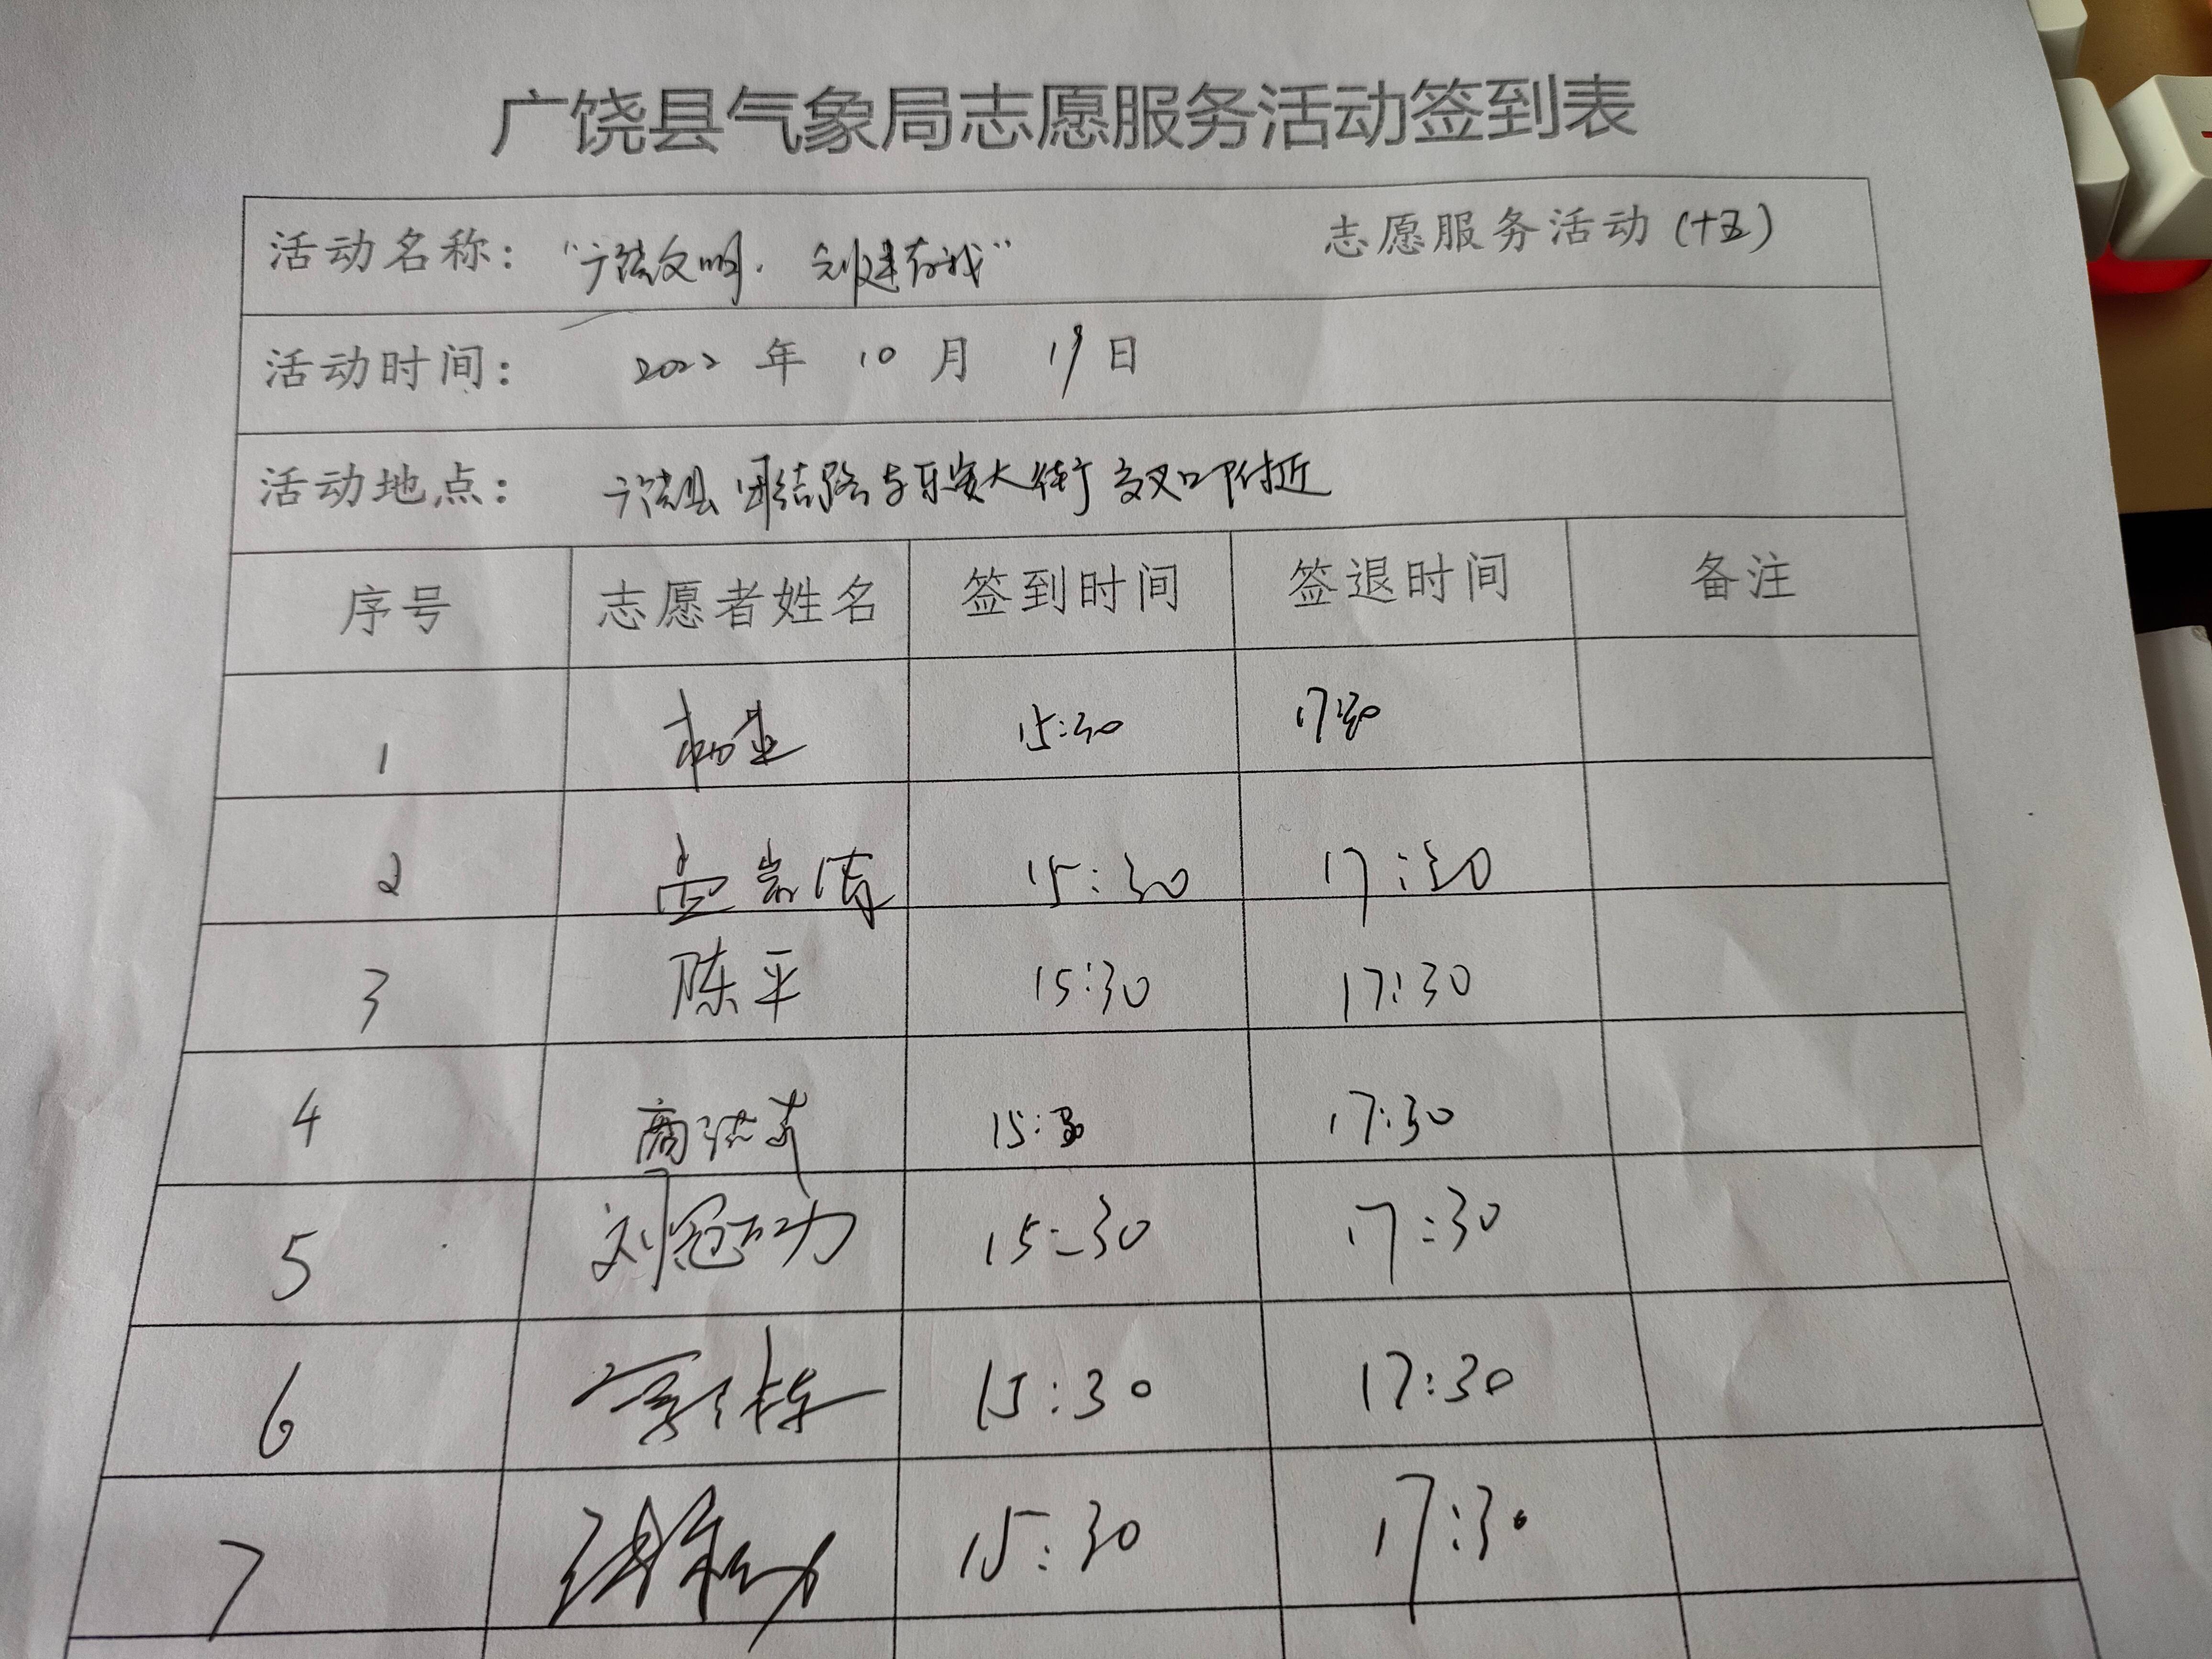 广饶县气象局志愿服务活动签到表
活动名称："广饶文明,创建有我" 志愿服务活动(十五)
活动时间: 2022 年 10 月 19 日
活动地点: 广饶县团结路与乐安大街交叉口附近
序号 志愿者姓名 签到时间 签退时间 备注
1 15:30 17:30
2 15:30 17:30
3 陈平 15:30 17:30
4 15:30 17:30
5 刘冠功 15:30 17:30
6 15:30 17:30
7 15:30 17:30